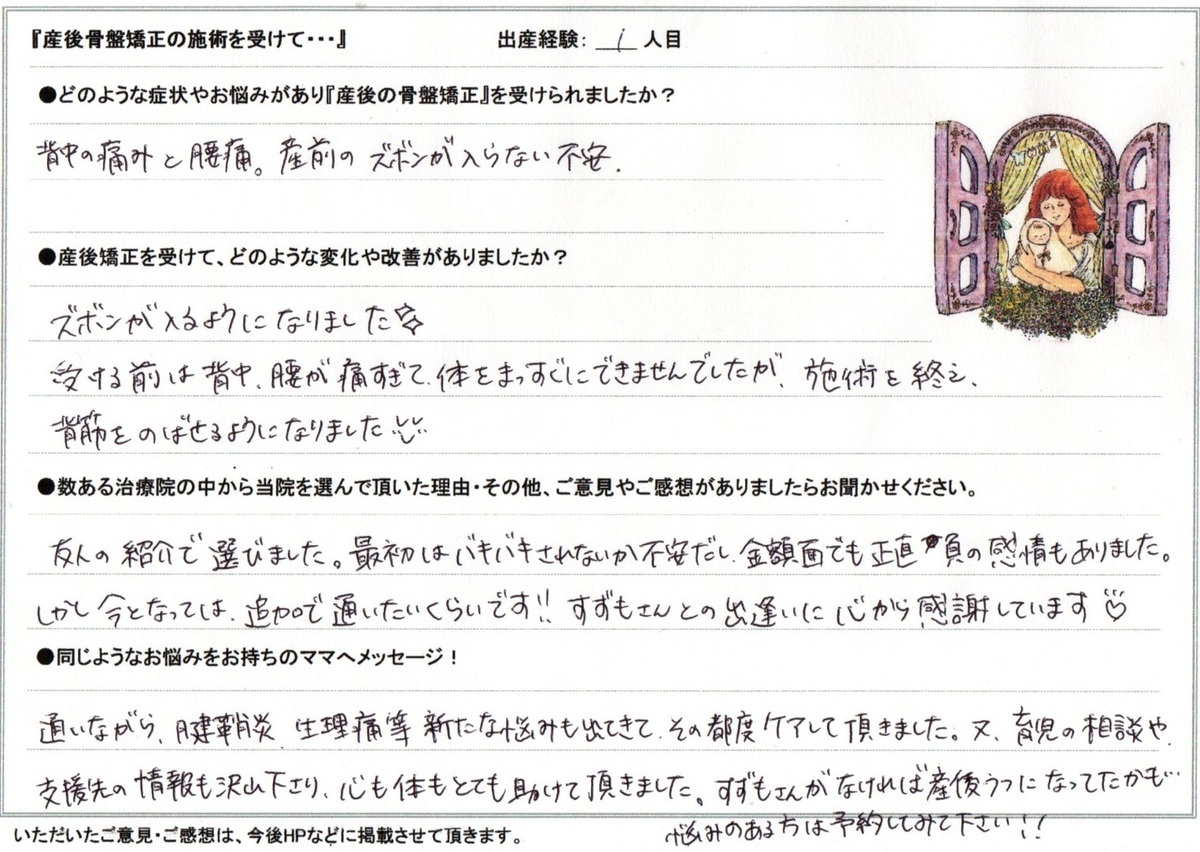 『産後骨盤矯正の施術を受けて・・・』 出産経験： 1 人目
●どのような症状やお悩みがあり『産後の骨盤矯正』を受けられましたか？
背中の痛みと腰痛。産前のズボンが入らない不安.
●産後矯正を受けて、どのような変化や改善がありましたか？
ズボンが入るようになりました☆
受ける前は背中、腰が痛すぎて、体をまっすぐにできませんでしたが、施術を終え、
背筋をのばせるようになりました
●数ある治療院の中から当院を選んで頂いた理由・その他、ご意見やご感想がありましたらお聞かせください。
友人の紹介で選びました。最初はバキバキされないか不安だし、金額面でも正直負の感情もありました。
しかし今となっては、追加で通いたいくらいです!! すずもさんとの出逢いに心から感謝しています♡
●同じようなお悩みをお持ちのママへメッセージ！
通いながら、腱鞘炎、生理痛等新たな悩みも出てきて、その都度ケアして頂きました。又、育児の相談や、
支援先の情報も沢山下さり、心も体もとても助けて頂きました。すずもさんがなければ産後うつになってたかも…
悩みのある方は予約してみて下さい!!
いただいたご意見・ご感想は、今後HPなどに掲載させて頂きます。